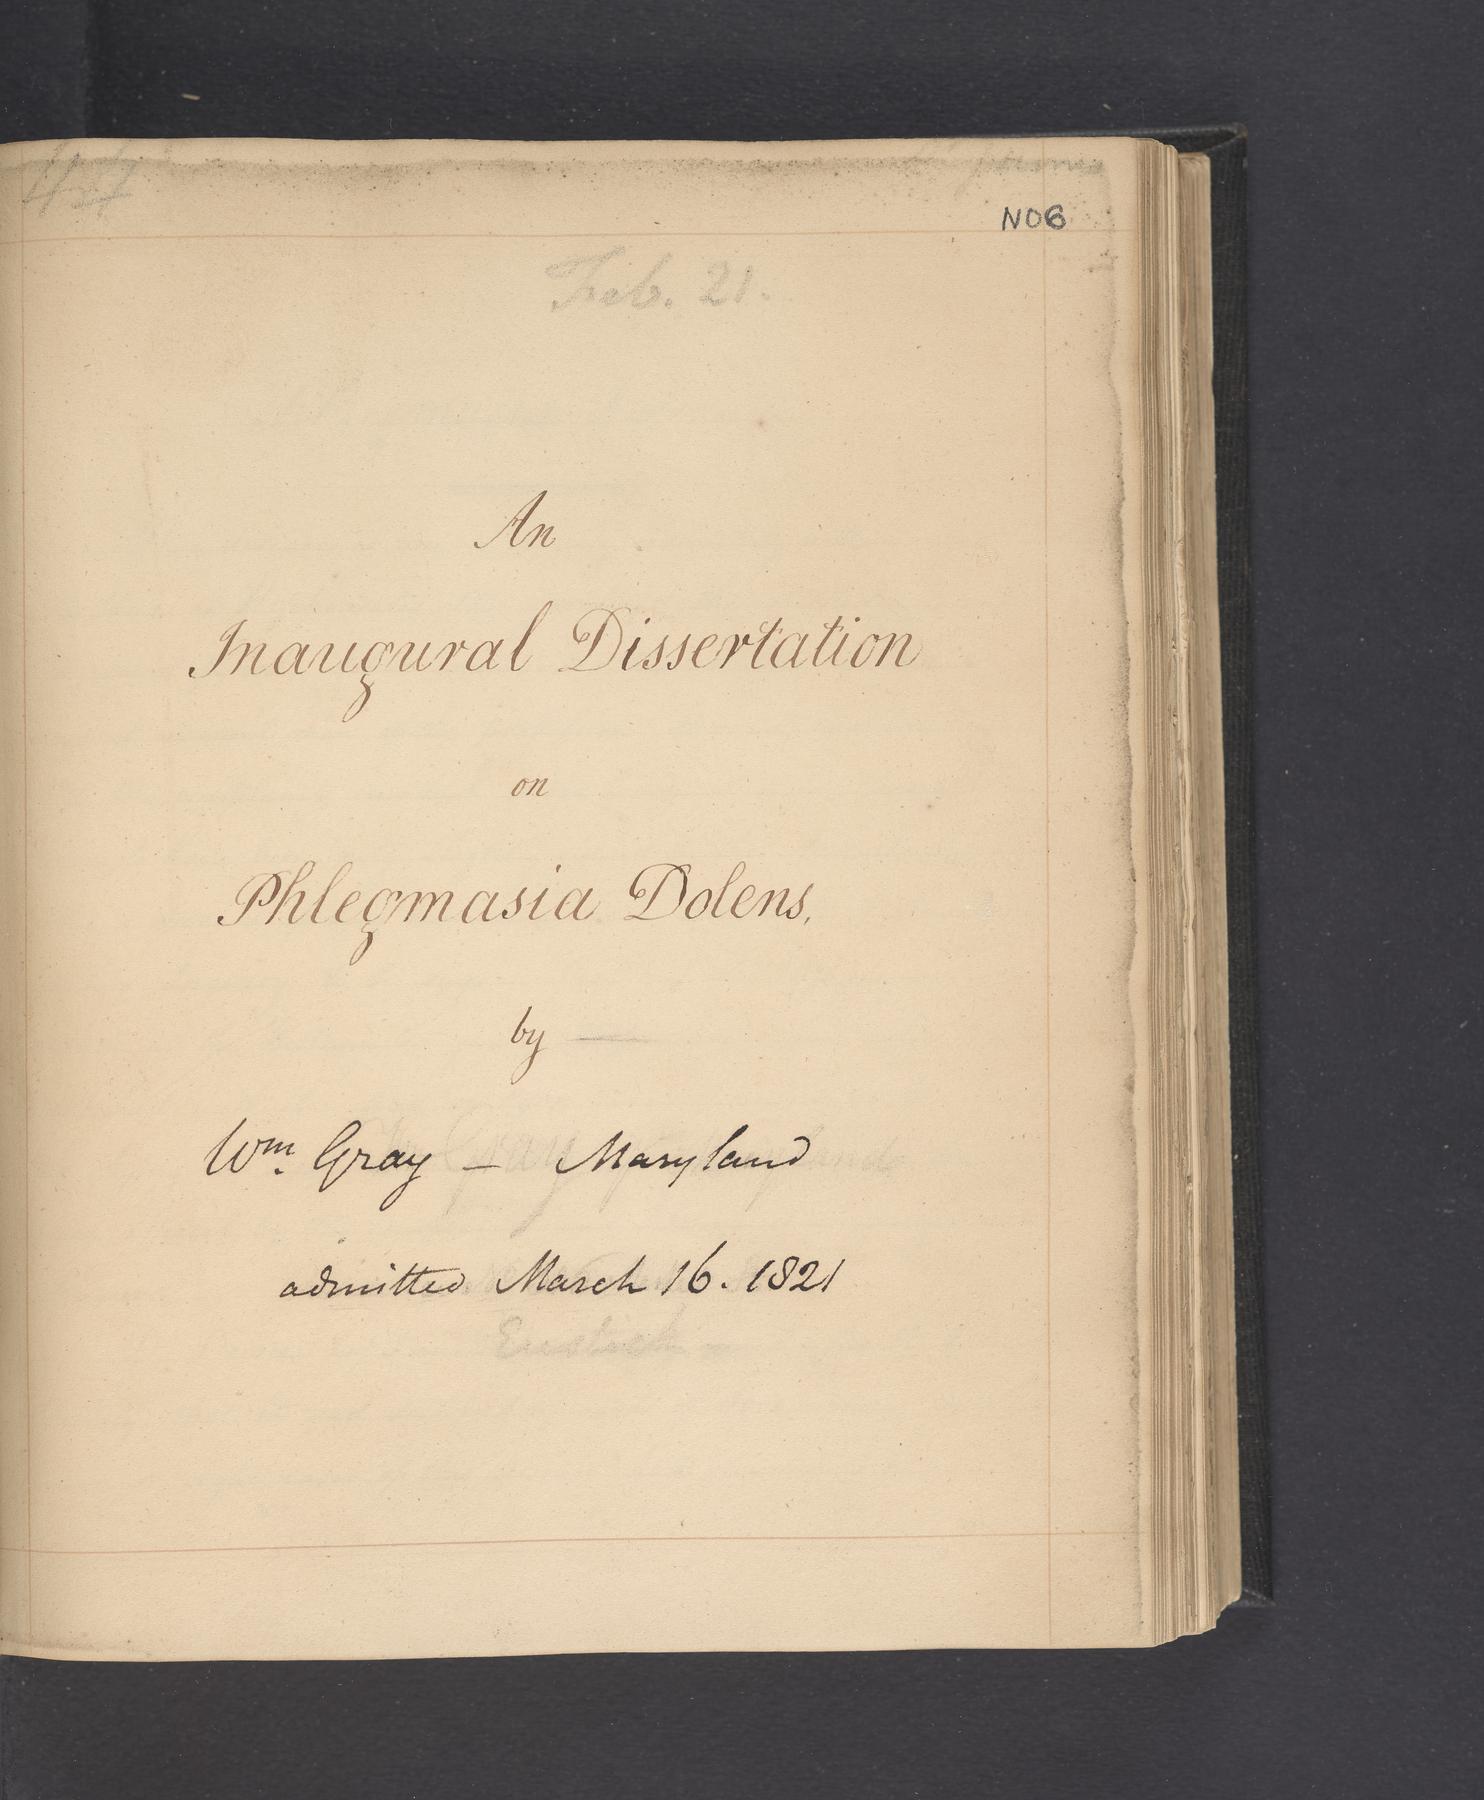 No 6
Feb. 21.
An
Inaugural Dissertation
on
Phlegmasia Dolens,
by —
Wm. Gray — Maryland
admitted March 16. 1821